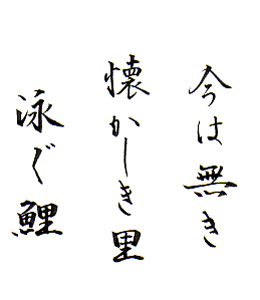 今は無き
懐かしき里
泳ぐ鯉